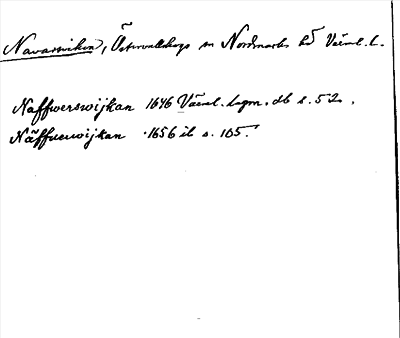 Navarviken, Östervallskogs sn Nordmarks hd Värml. l.
Naffwerswijkan 1646 Värml. lagm. db s. 52.
Näffuerwijkan 1656 ib s. 105.